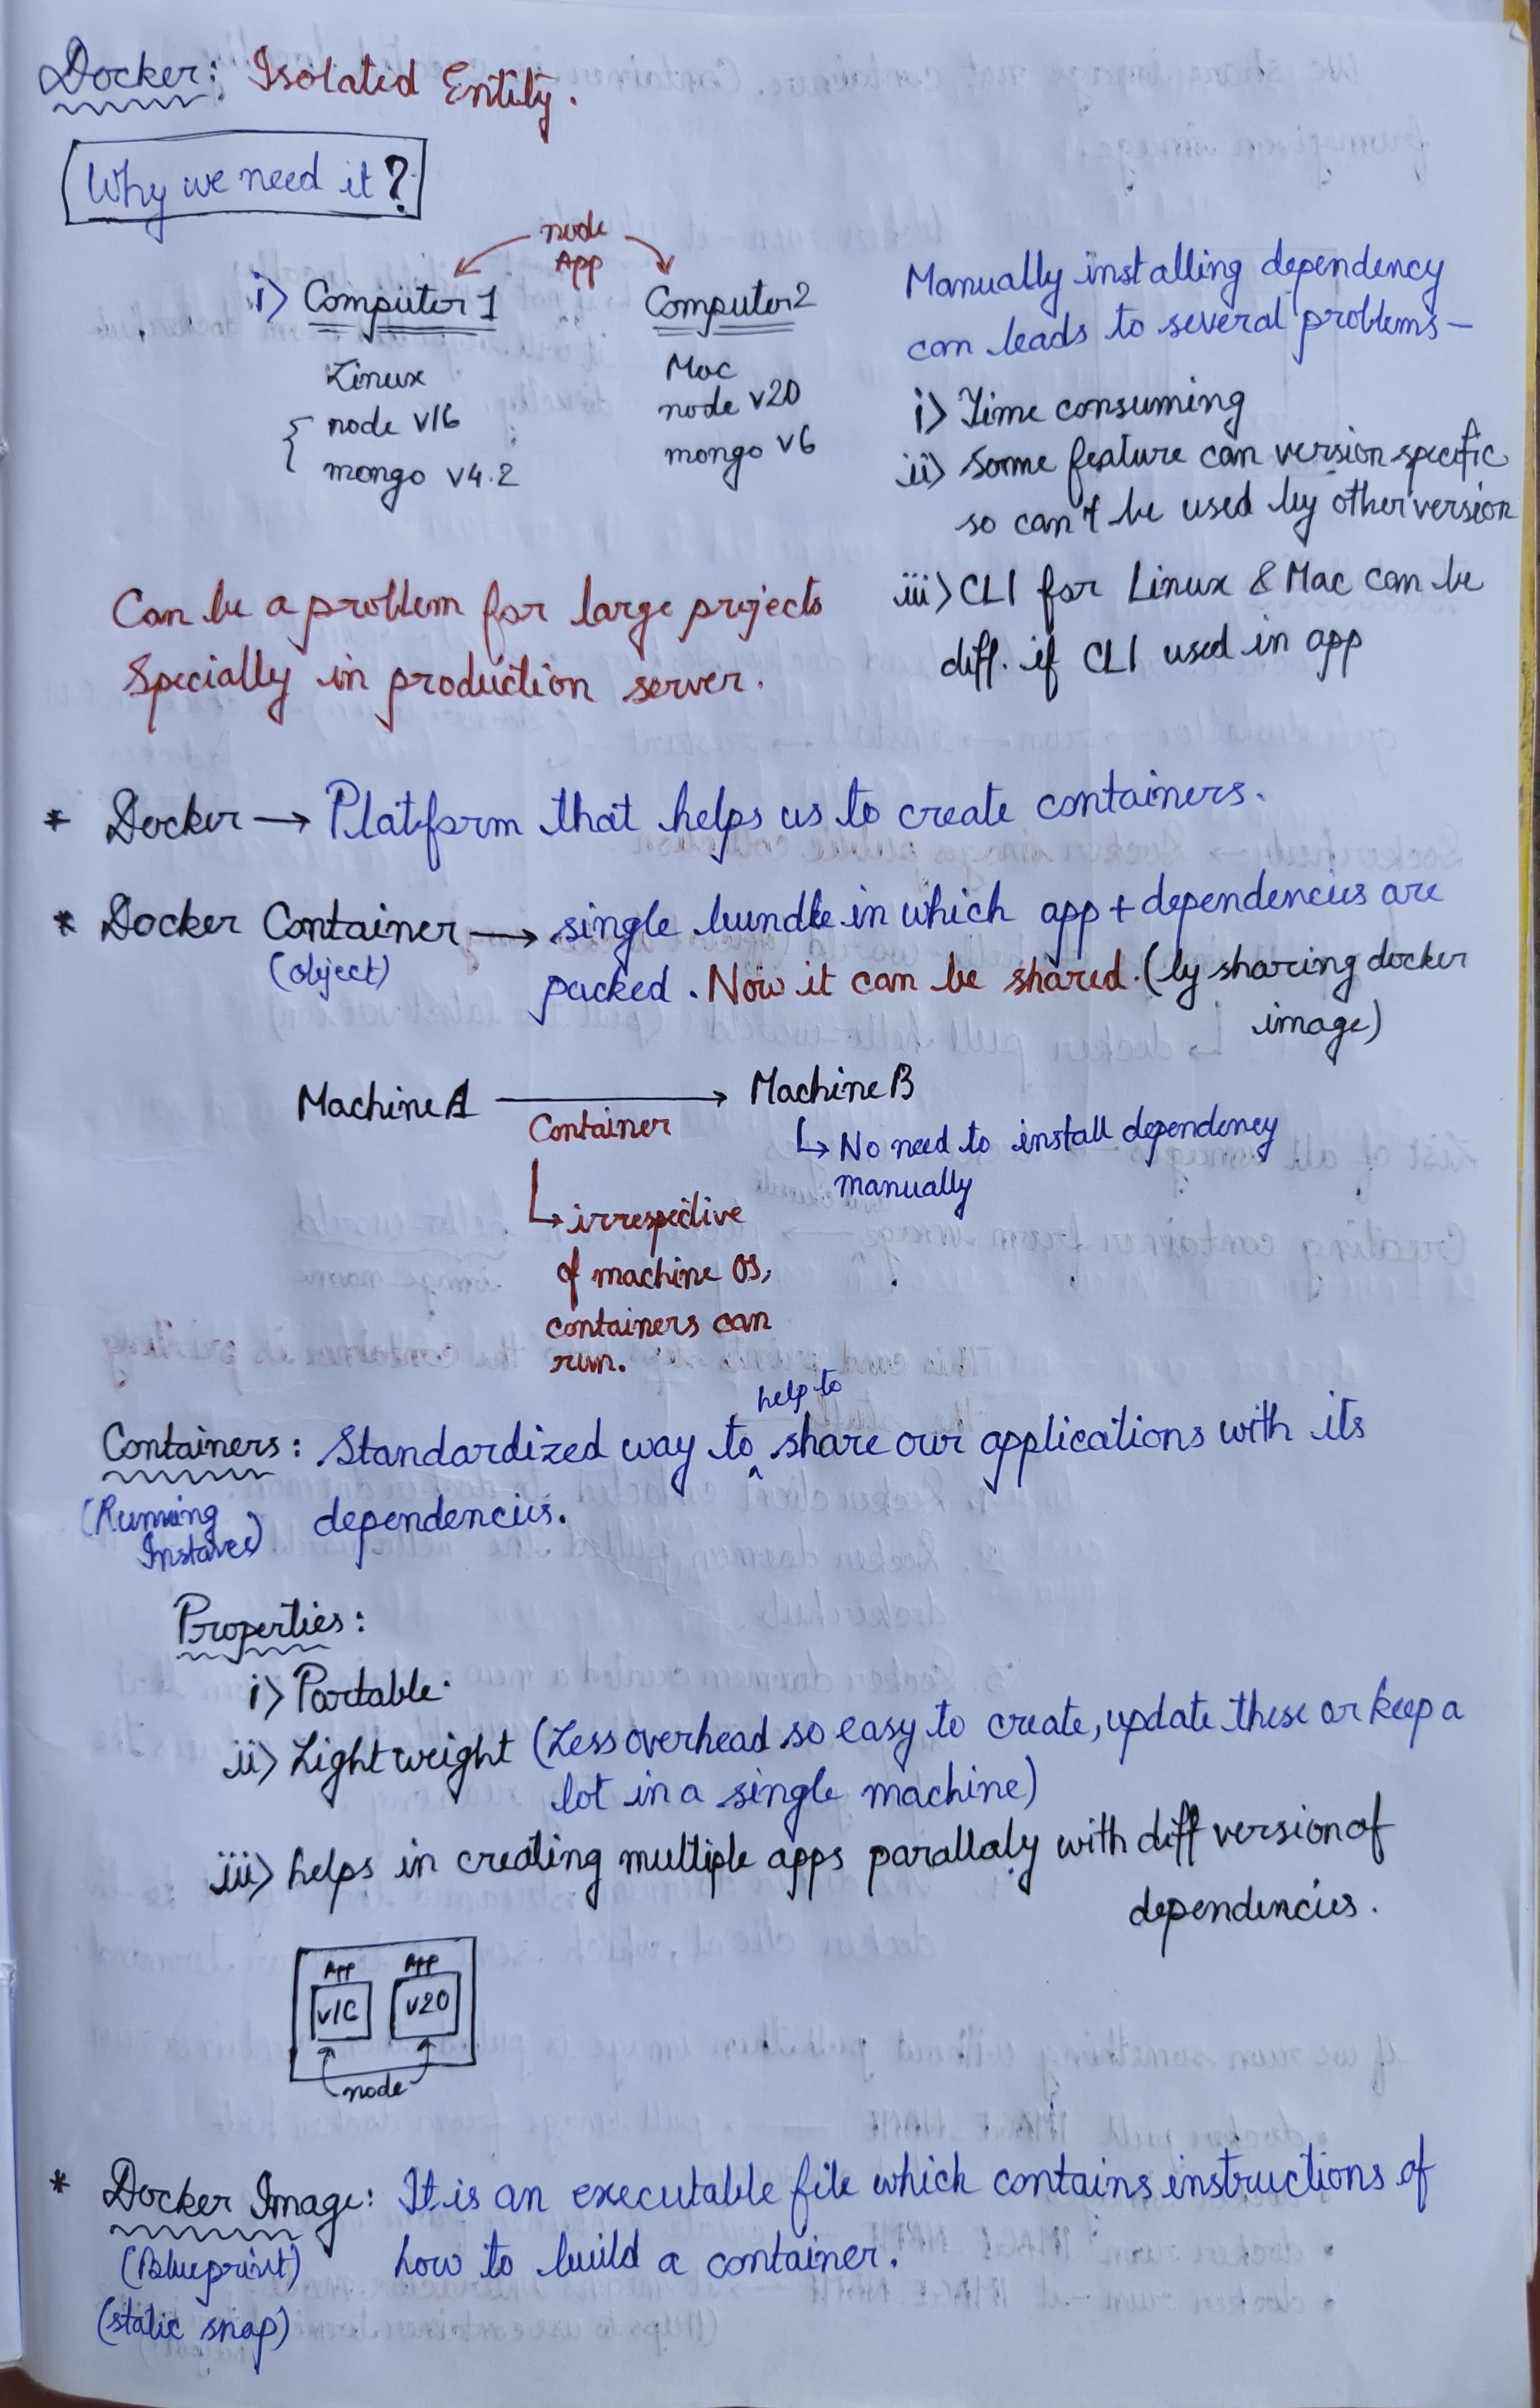 Docker: Isolated Entity.
Why we need it?
node
App
i> Computer 1
Linux
node v16
mongo v4.2
Computer 2
Mac
node v20
mongo v6
Manually installing dependency
can leads to several problems –
i> Time consuming
ii> Some feature can version specific
so can't be used by other version
iii> CLI for Linux & Mac can be
diff. if CLI used in app
Can be a problem for large projects
Specially in production server.
* Docker → Platform that helps us to create containers.
* Docker Container → single bundle in which app + dependencies are
(object)
packed. Now it can be shared. (by sharing docker
image)
Machine A → Machine B
Container
↳ No need to install dependency
manually
↳ irrespective
of machine OS,
containers can
run.
help to
Containers: Standardized way to ^ share our applications with its
(Running
Instance)
dependencies.
Properties:
i> Portable.
ii> Light weight (Less overhead so easy to create, update these or keep a
lot in a single machine)
iii> helps in creating multiple apps parallaly with diff version of
dependencies.
App App
v16 v20
node
* Docker Image: It is an executable file which contains instructions of
(Blueprint)
how to build a container.
(static snap)